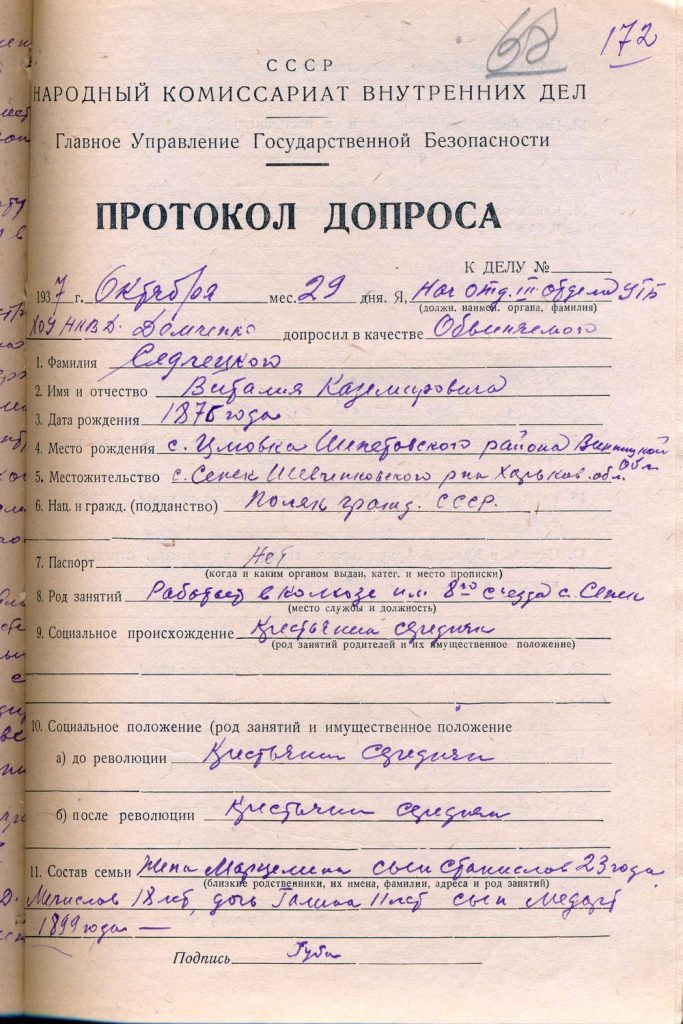 68 172
СССР
НАРОДНЫЙ КОМИССАРИАТ ВНУТРЕННИХ ДЕЛ
Главное Управление Государственной Безопасности
ПРОТОКОЛ ДОПРОСА
К ДЕЛУ №
1937 г. Октября мес. 29 дня. Я, Нач отд. III отдела УГБ
(должн. наимен. органа, фамилия)
ХОУ НКВД. Демченко допросил в качестве Обвиняемого
1. Фамилия Седлецкого
2. Имя и отчество Виталия Каземировича
3. Дата рождения 1875 года
4. Место рождения с. Цмовка Шепетовского района Винницкой обл
5. Местожительство с. Сенек Шевченковского р-на Харьков. обл.
6. Нац. и гражд. (подданство) Поляк гражд. СССР.
7. Паспорт Нет
(когда и каким органом выдан, катег. и место прописки)
8. Род занятий Работает в колхозе им 8го съезда с. Сенек
(место службы и должность)
9. Социальное происхождение Крестьянин середняк
(род занятий родителей и их имущественное положение)
10. Социальное положение (род занятий и имущественное положение
а) до революции Крестьянин середняк
б) после революции Крестьянин середняк
11. Состав семьи Жена Марцелина сын Станислов 23 года
(близкие родственники, их имена, фамилии, адреса и род занятий)
Мечислов 18 лет, дочь Галина 11 лет сын
1899 года —
Подпись